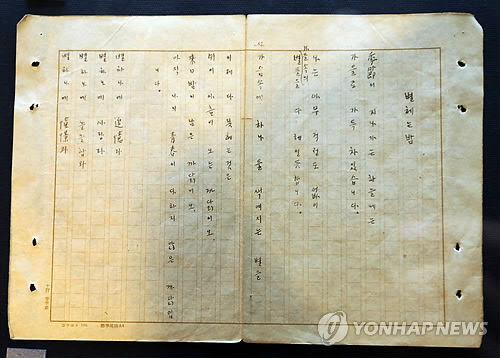 별헤는밤
季節이 지나가는 하늘에는
가을로 가득 차있습니다.
나는 아무 걱정도 없이
가을속의
별들을 다 헤일듯합니다.
가슴속에 하나 둘 색여지는 별을
이제 다 못헤는것은
쉬이 아츰이 오는 까닭이오,
來日밤이 남은 까닭이오,
아직 나의 靑春이 다하지 않은 까닭입
니다.
별하나에 追憶과
별하나에 사랑과
별하나에 쓸쓸함과
별하나에 憧憬과
YONHAP NEWS